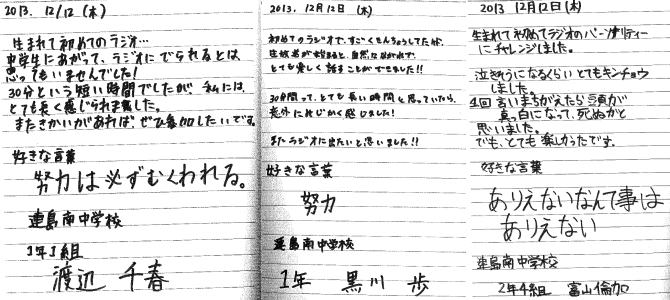 2013. 12/12 (木)
生まれて初めてのラジオ…
中学生にあがって、ラジオにでられるとは
思ってもいませんでした!
30分という短い時間でしたが、私には、
とても長く感じられました。
またきかいがあれば、ぜひ参加したいです。
好きな言葉
努力は必ずむくわれる。
連島南中学校
1年1組
渡辺 千春
2013. 12月12日 (木)
初めてのラジオで、すごくきんちょうしてたけど、
生放送が始まると、自然な流れで、
とても楽しく話すことができました!!
30分間って、とても長い時間と思っていたら、
意外にみじかく感じました!
またラジオに出たいと思いました!!
好きな言葉
努力
連島南中学校
1年 黒川 歩
2013 12月12日(木)
生まれて初めてラジオのパーソナリティー
にチャレンジしました。
泣きそうになるくらいとてもキンチョウ
しました。
4回言いまちがえたら頭が
真っ白になって、死ぬかと
思いました。
でも、とても楽しかったです。
好きな言葉
ありえないなんて事は
ありえない
連島南中学校
2年4組 富山倫加